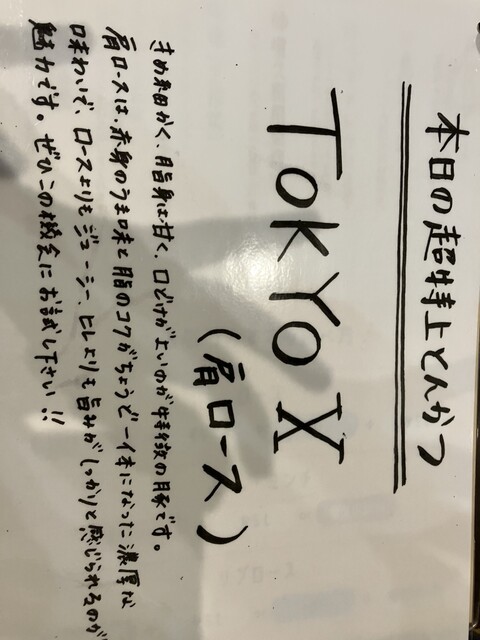 本日の超特上とんかつ
TOKYO X
(肩ロース)
きめ細かく、脂身は甘く、口どけがよいのが特徴の豚です。
肩ロースは、赤身のうま味と脂のコクがちょうど一体になった濃厚な
味わいで、ロースよりもジューシー、ヒレよりも旨みがしっかりと感じられるのが
魅力です。ぜひこの機会にお試し下さい!!